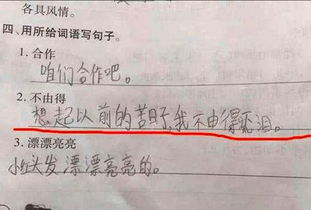 各具风情。
四、用所给词语写句子。
1. 合作
咱们合作吧。
2. 不由得
想起以前的苦日子,我不由得泪。
3. 漂漂亮亮
小红头发漂漂亮亮的。